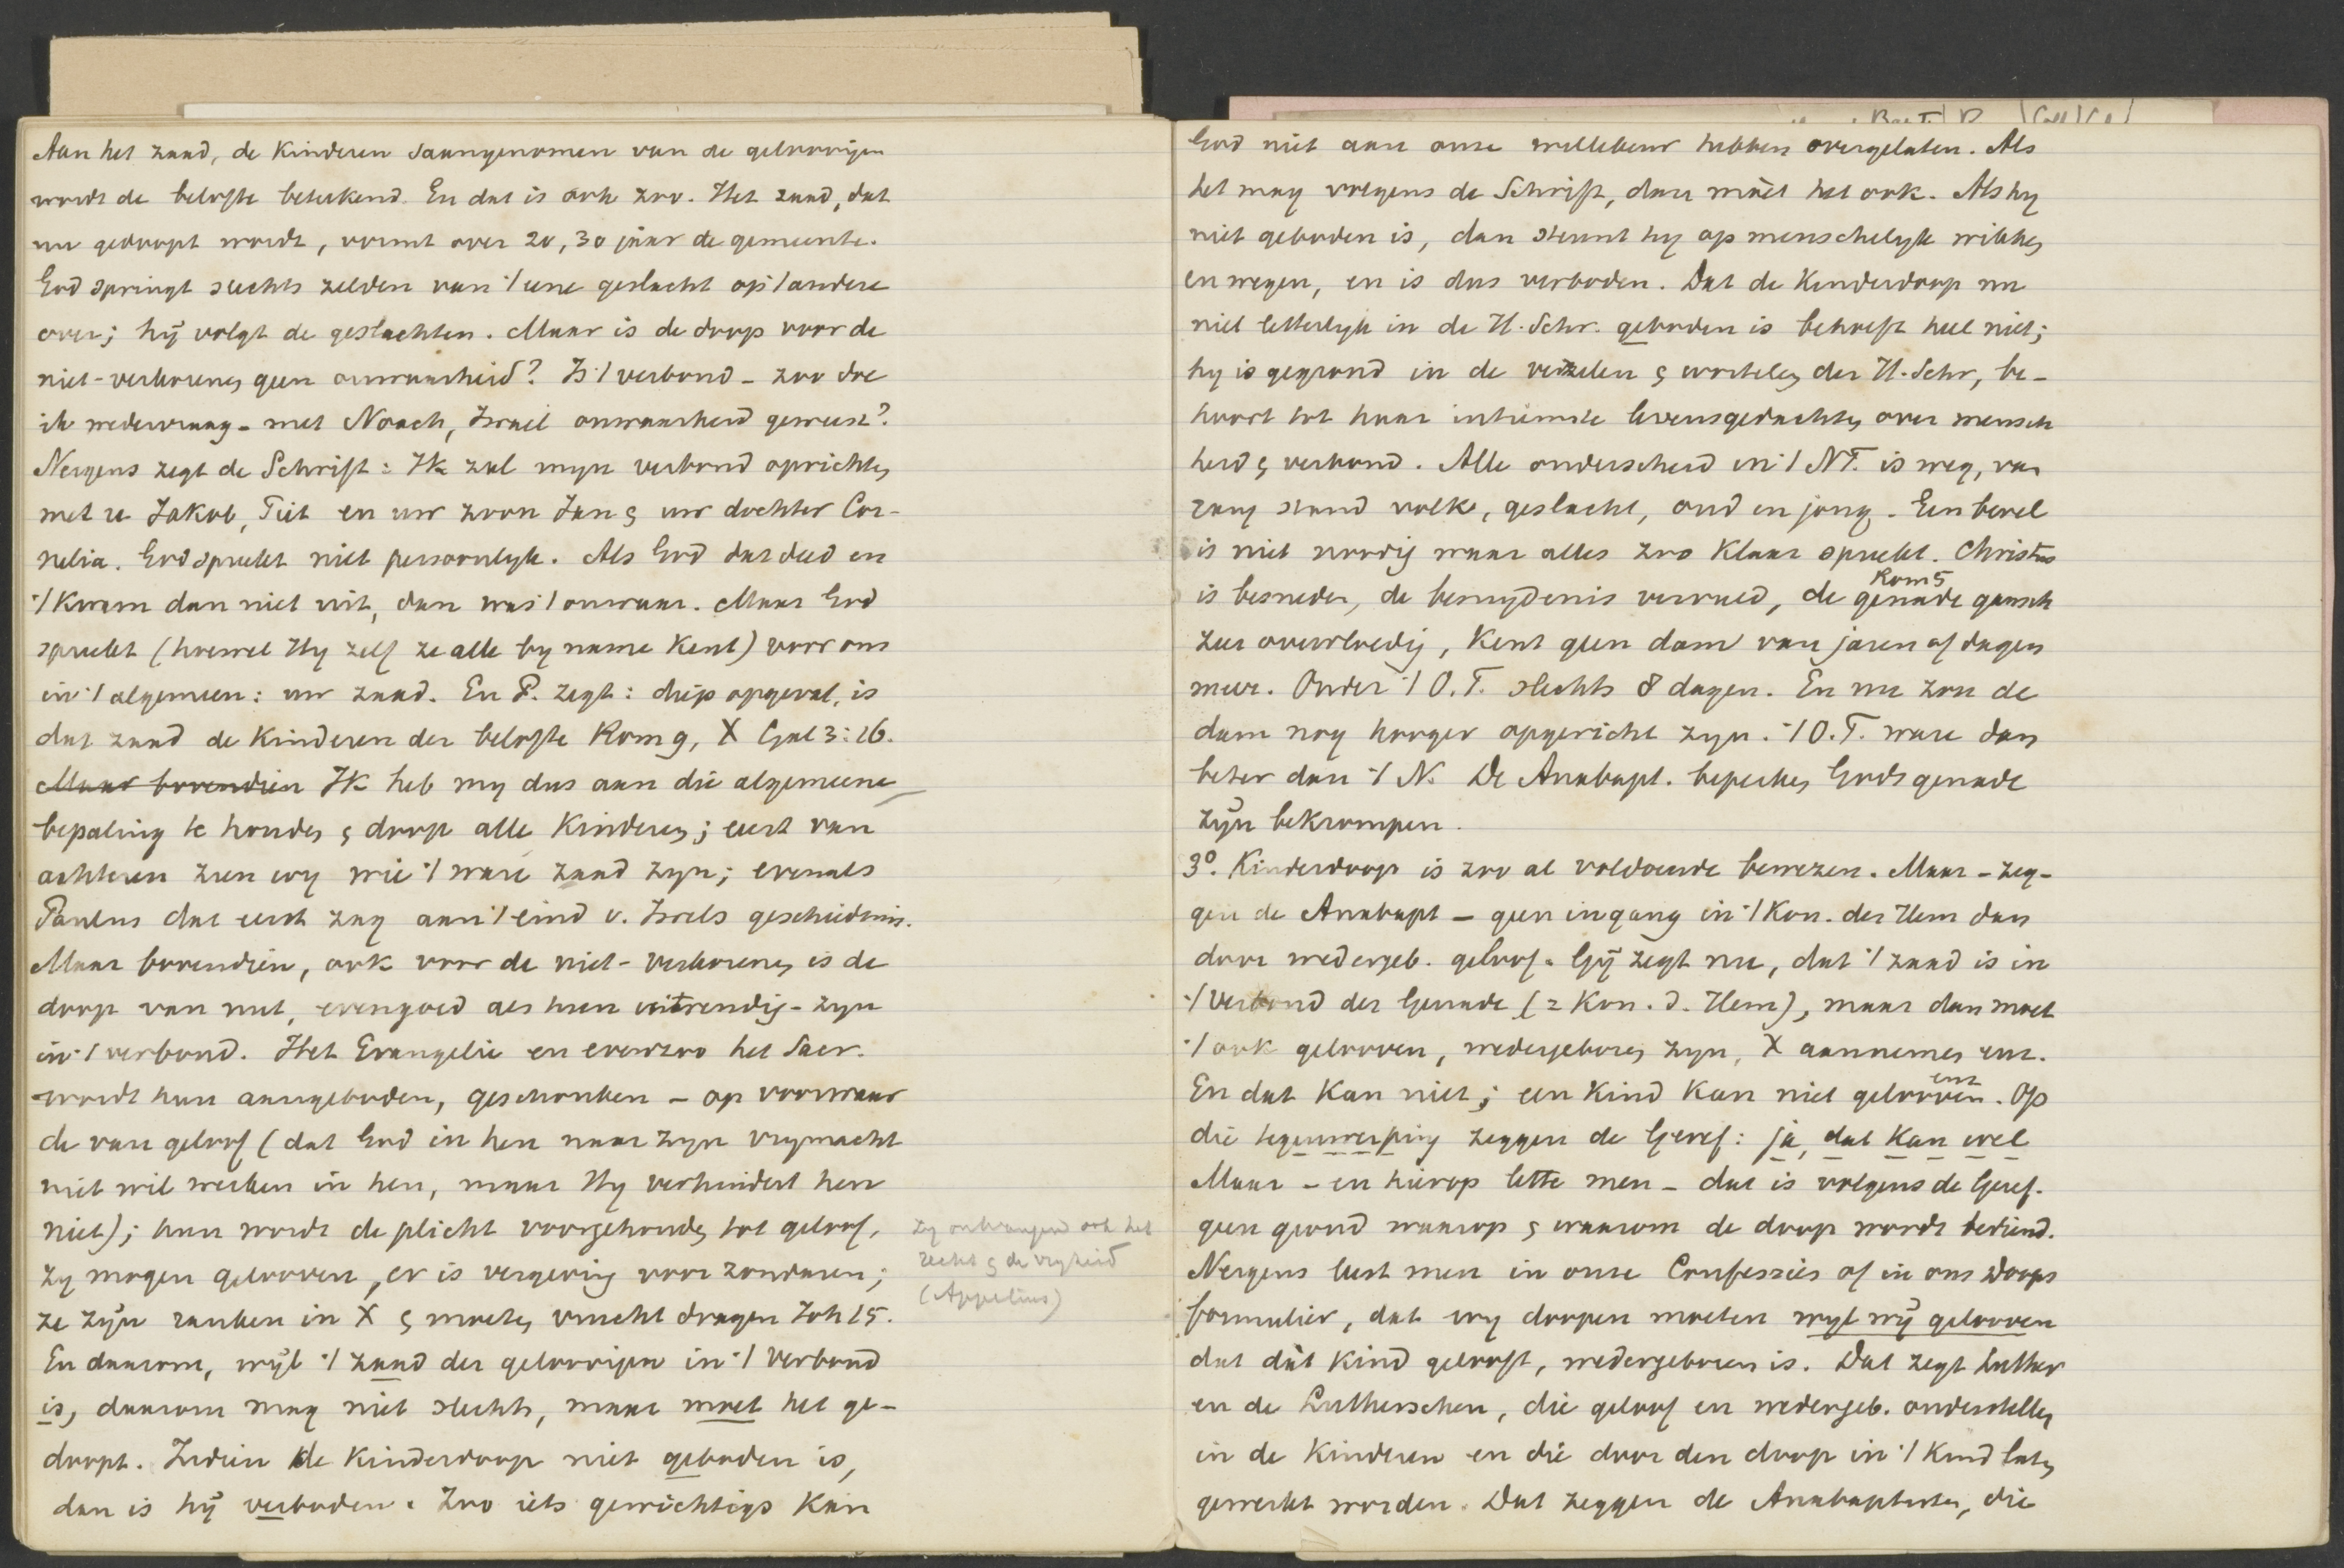 Aan het zaad, de Kinderen saamgenomen van de geloovigen
wordt de belofte beteekend. En dat is ook zoo. Het zaad, dat
nu gedoopt wordt, vormt over 20, 30 jaar de gemeente.
God springt slechts zelden van 't eene geslacht op 't andere
over; hij volgt de geslachten. Maar is de doop voor de
niet-verkorenen geen onwaarheid? Is 't verbond – zoo doe
ik wedervraag – met Noach, Israel onwaarheid geweest?
Nergens zegt de Schrift: Ik zal myn verbond oprichten
met u Jakob, Piet en uw zoon Jan & uw dochter Cor-
nelia. God spreekt niet persoonlyk. Als God dat deed en
't kwam dan niet uit, dan was 't onwaar. Maar God
spreekt (hoewel Hy zelf ze alle by name Kent) voor ons
in 't algemeen: uw zaad. En P. zegt: diep opgevat, is
dat zaad de Kinderen der belofte Rom 9, X Gal 3:16.
Maar bovendien Ik heb my dus aan die algemeene
bepaling te houden & doop alle Kinderen; eerst van
achteren zien wy wie 't ware zaad zyn; evenals
Paulus dat eerst zag aan 't eind v. Israels geschiedenis.
Maar bovendien, ook voor de niet-verkorenen is de
doop van nut, evengoed als hun uitwendig-zyn
in 't verbond. Het Evangelie en evenzoo het Sacr.
wordt hun aangeboden, geschonken – op voorwaar
de van geloof (dat God in hen naar zyn vrymacht
niet wil werken in hen, maar Hy verhindert hen
niet); hun wordt de plicht voorgehouden tot geloof,
zy ontvangen ook het
recht & de vryheid
(Appelius)
zy mogen gelooven, er is vergeving voor zondaren;
ze zijn ranken in X & moeten vrucht dragen Joh 15.
En daarom, wijl 't zaad der geloovigen in 't Verbond
is, daarom mag niet slechts, maar moet het ge-
doopt. Indien de Kinderdoop niet geboden is,
dan is hij verboden. Zoo iets gewichtigs Kan
God niet aan onze willekeur hebben overgelaten. Als
het mag volgens de Schrift, dan móet het ook. Als hy
niet geboden is, dan steunt hy op menschelyk wikken
en wegen, en is dus verboden. Dat de Kinderdoop nu
niet letterlyk in de H. Schr. geboden is behoeft heel niet;
hy is gegrond in de vezelen & wortelen der H. Schr, be-
hoort tot haar intiemste levensgedachten over mensch
heid & verbond. Alle onderscheid in 't NT. is weg, van
rang stand volk, geslacht, oud en jong. Een bevel
is niet noodig waar alles zoo Klaar spreekt. Christus
is besneden, de besnydenis vervuld, de genade gansch
Rom 5
zeer overvloedig, Kent geen dam van jaren of dagen
meer. Onder 't O.T. slechts 8 dagen. En nu zou de
dam nog hooger opgericht zyn. 't O.T. ware dan
beter dan 't N. De Anabapt. beperken Gods genade
zijn bekrompen.
3°. Kinderdoop is zoo al voldoende bewezen. Maar – zeg-
gen de Anabapt – geen ingang in 't Kon. der Hem dan
door wedergeb. geloof. Gij zegt nu, dat 't zaad is in
't Verbond der Genade (= Kon. d. Hem), maar dan moet
't ook gelooven, wedergeboren zyn, X aannemen enz.
En dat Kan niet; een Kind Kan niet gelooven enz. Op
die tegenwerping zeggen de Geref: ja, dat Kan wel
Maar – en hierop lette men – dat is volgens de Geref.
geen grond waarop & waarom de doop wordt bediend.
Nergens leest men in onze Confessies of in ons Doops
formulier, dat wy doopen moeten wyl wij gelooven
dat dàt Kind gelooft, wedergeboren is. Dat zegt Luther
en de Lutherschen, die geloof en wedergeb. onderstellen
in de Kinderen en die door den doop in 't Kind laten
gewerkt worden. Dat zeggen de Anabaptisten, die